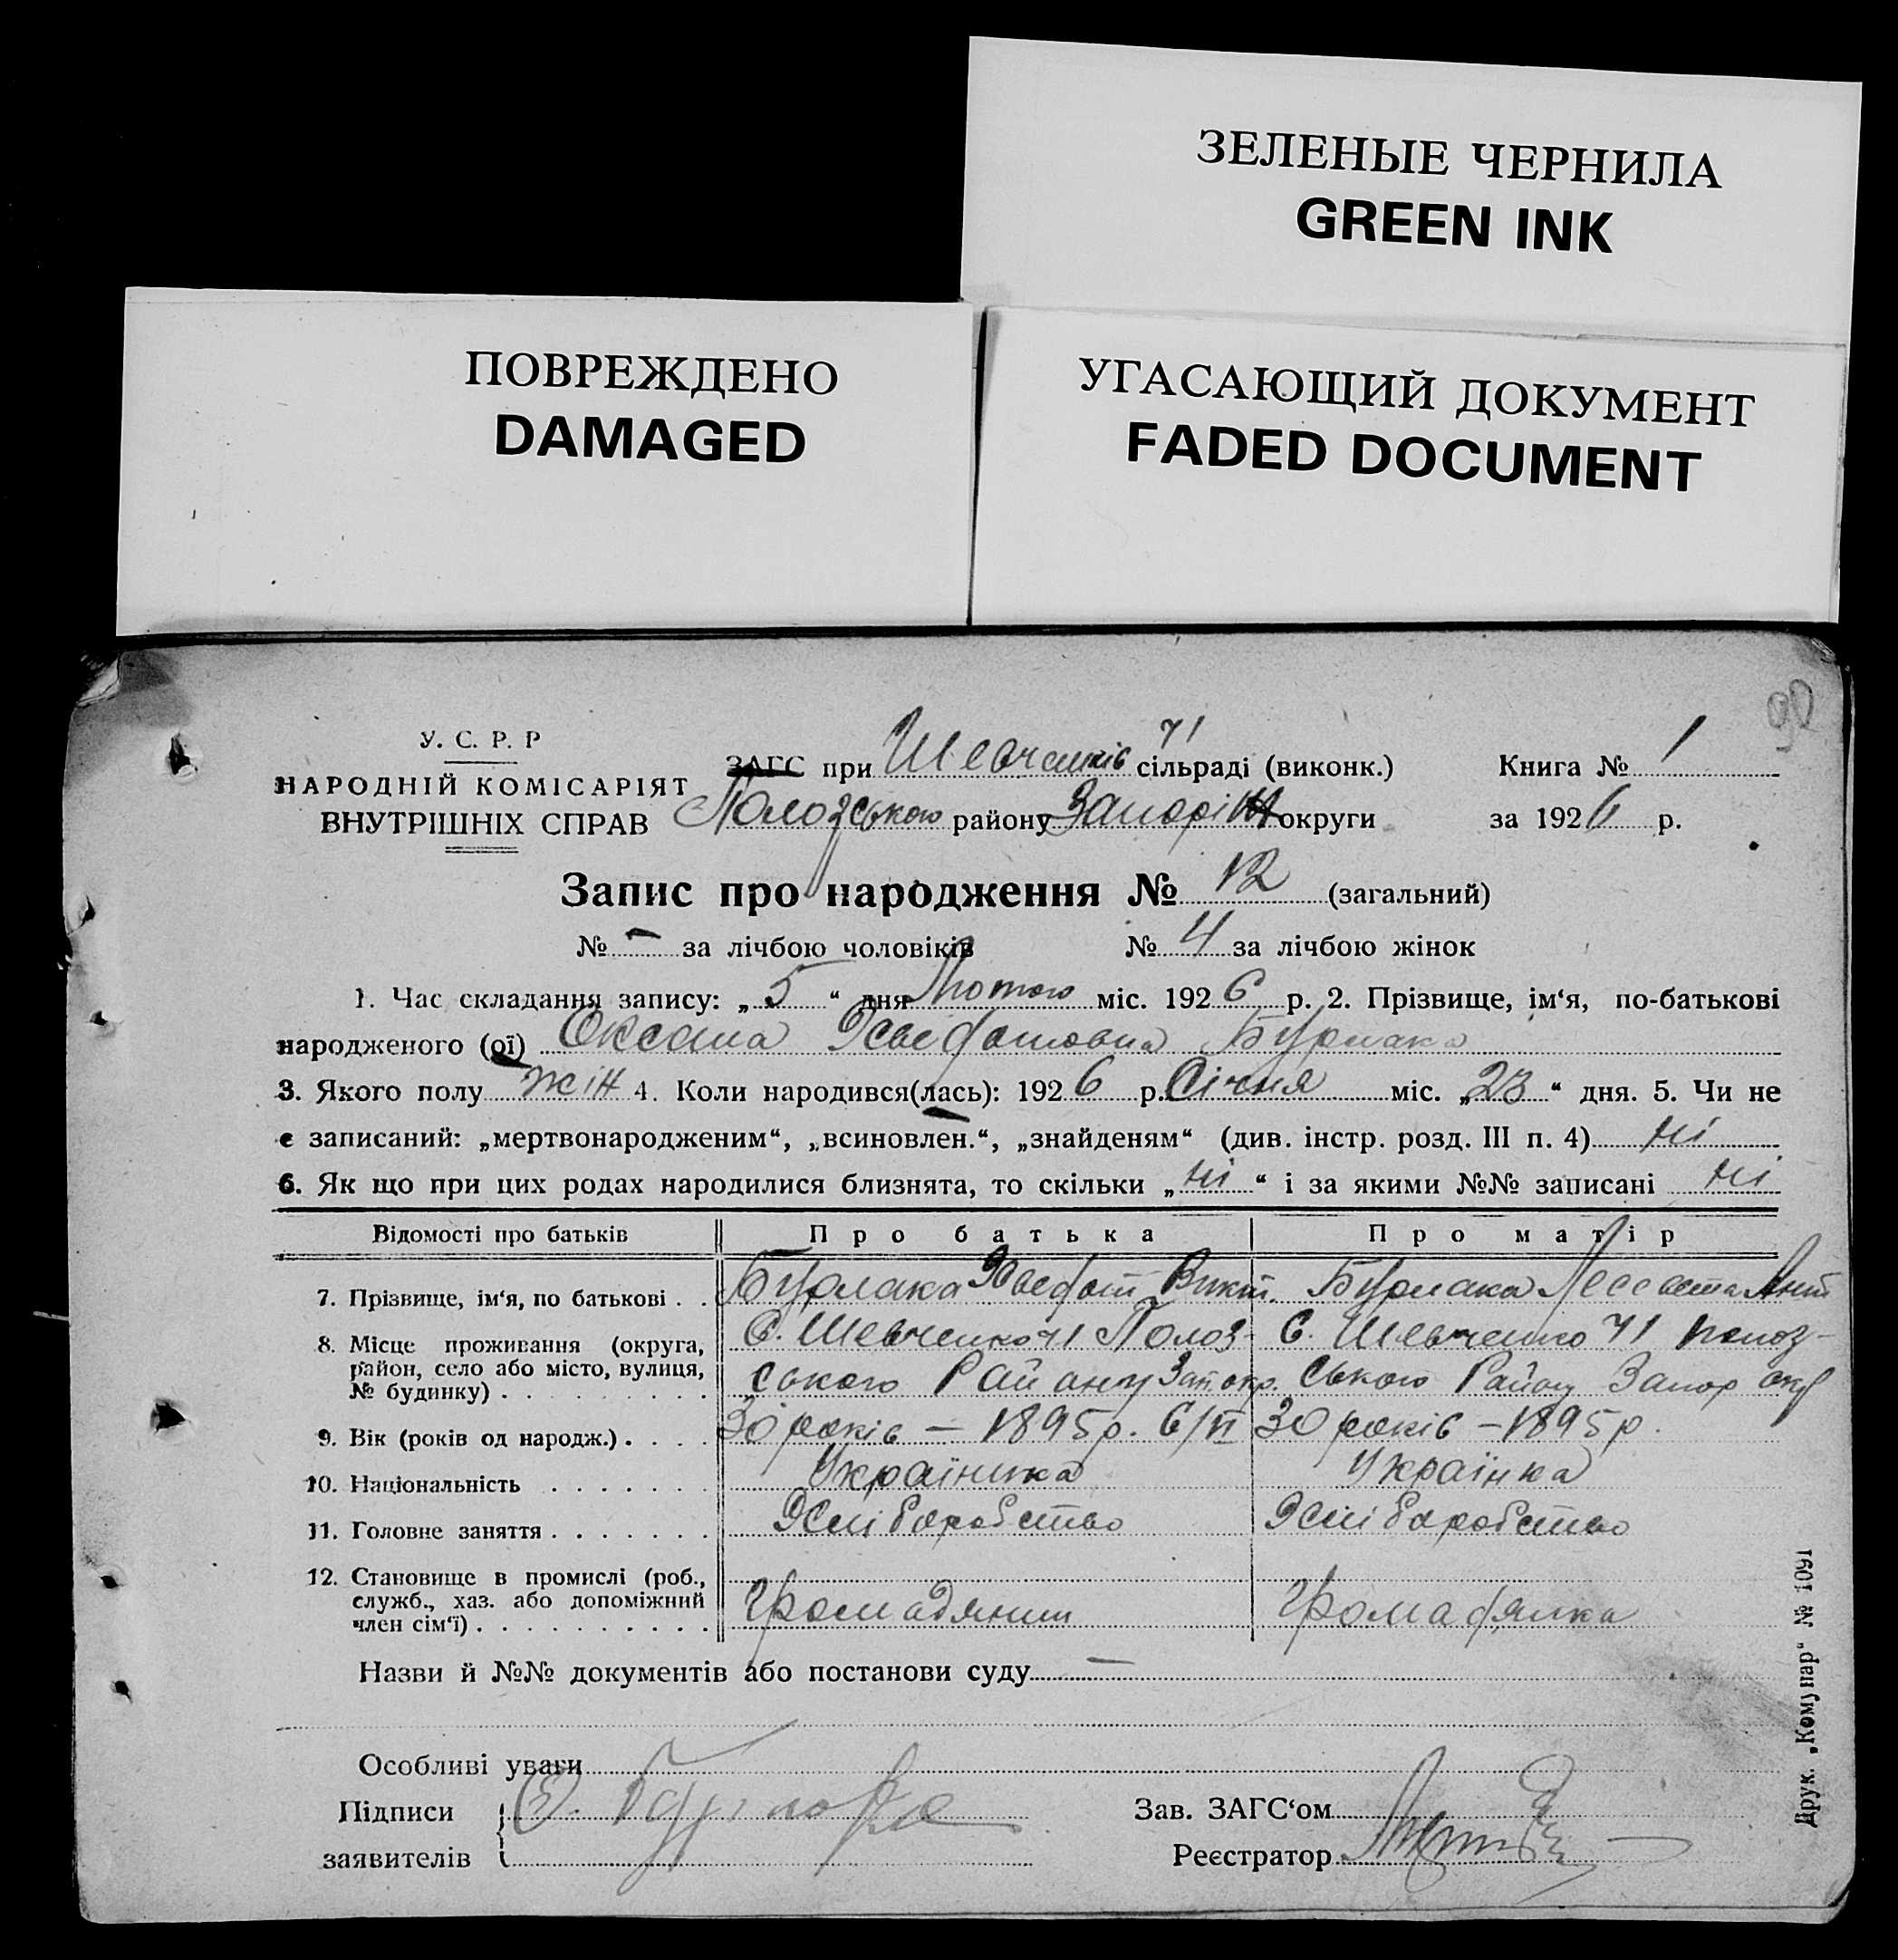 ЗЕЛЕНЫЕ ЧЕРНИЛА
GREEN INK
ПОВРЕЖДЕНО
DAMAGED
УГАСАЮЩИЙ ДОКУМЕНТ
FADED DOCUMENT
92
У. С. Р. Р
НАРОДНІЙ КОМІСАРІЯТ
ВНУТРІШНІХ СПРАВ
ЗАГС при Шевченків 71 сільраді (виконк.)
Пологського району Запоріж округи
Книга № 1
за 1926 р.
Запис про народження № 12 (загальний)
№ - за лічбою чоловіків № 4 за лічбою жінок
1. Час складання запису: „ 5 “ дня Лютого міс. 1926 р. 2. Прізвище, ім‘я, по-батькові
народженого (ої) Оксана Бурлака
3. Якого полу жін 4. Коли народився(лась): 1926 р. Січня міс. „ 23 “ дня. 5. Чи не
є записаний: „мертвонародженим“, „всиновлен.“, „знайденям“ (див. інстр. розд. III п. 4) ні
6. Як що при цих родах народилися близнята, то скільки „ ні “ і за якими №№ записані ні
Відомості про батьків Про батька Про матір
7. Прізвище, ім‘я, по батькові . . Бурлака Бурлака
8. Місце проживання (округа, район, село або місто, вулиця, № будинку) . . . . . . . . .
С. Шевченко 71 Полоз-
ського Району Зап. окр.
С. Шевченко 71 Полоз-
ського Району Запор окр
9. Вік (років од народж.) . . . . 30 років — 1895 р. 30 років – 1895 р.
10. Національність . . . . . . . Українка
11. Головне заняття . . . . . . . Хліборобство Хліборобство
12. Становище в промислі (роб., служб., хаз. або допоміжний член сім‘ї) . . . . . . . . . . Громадянин Громадянка
Назви й №№ документів або постанови суду —
Особливі уваги
Підписи
заявителів
Зав. ЗАГС‘ом
Реєстратор
Друк. „Комунар“ № 1091